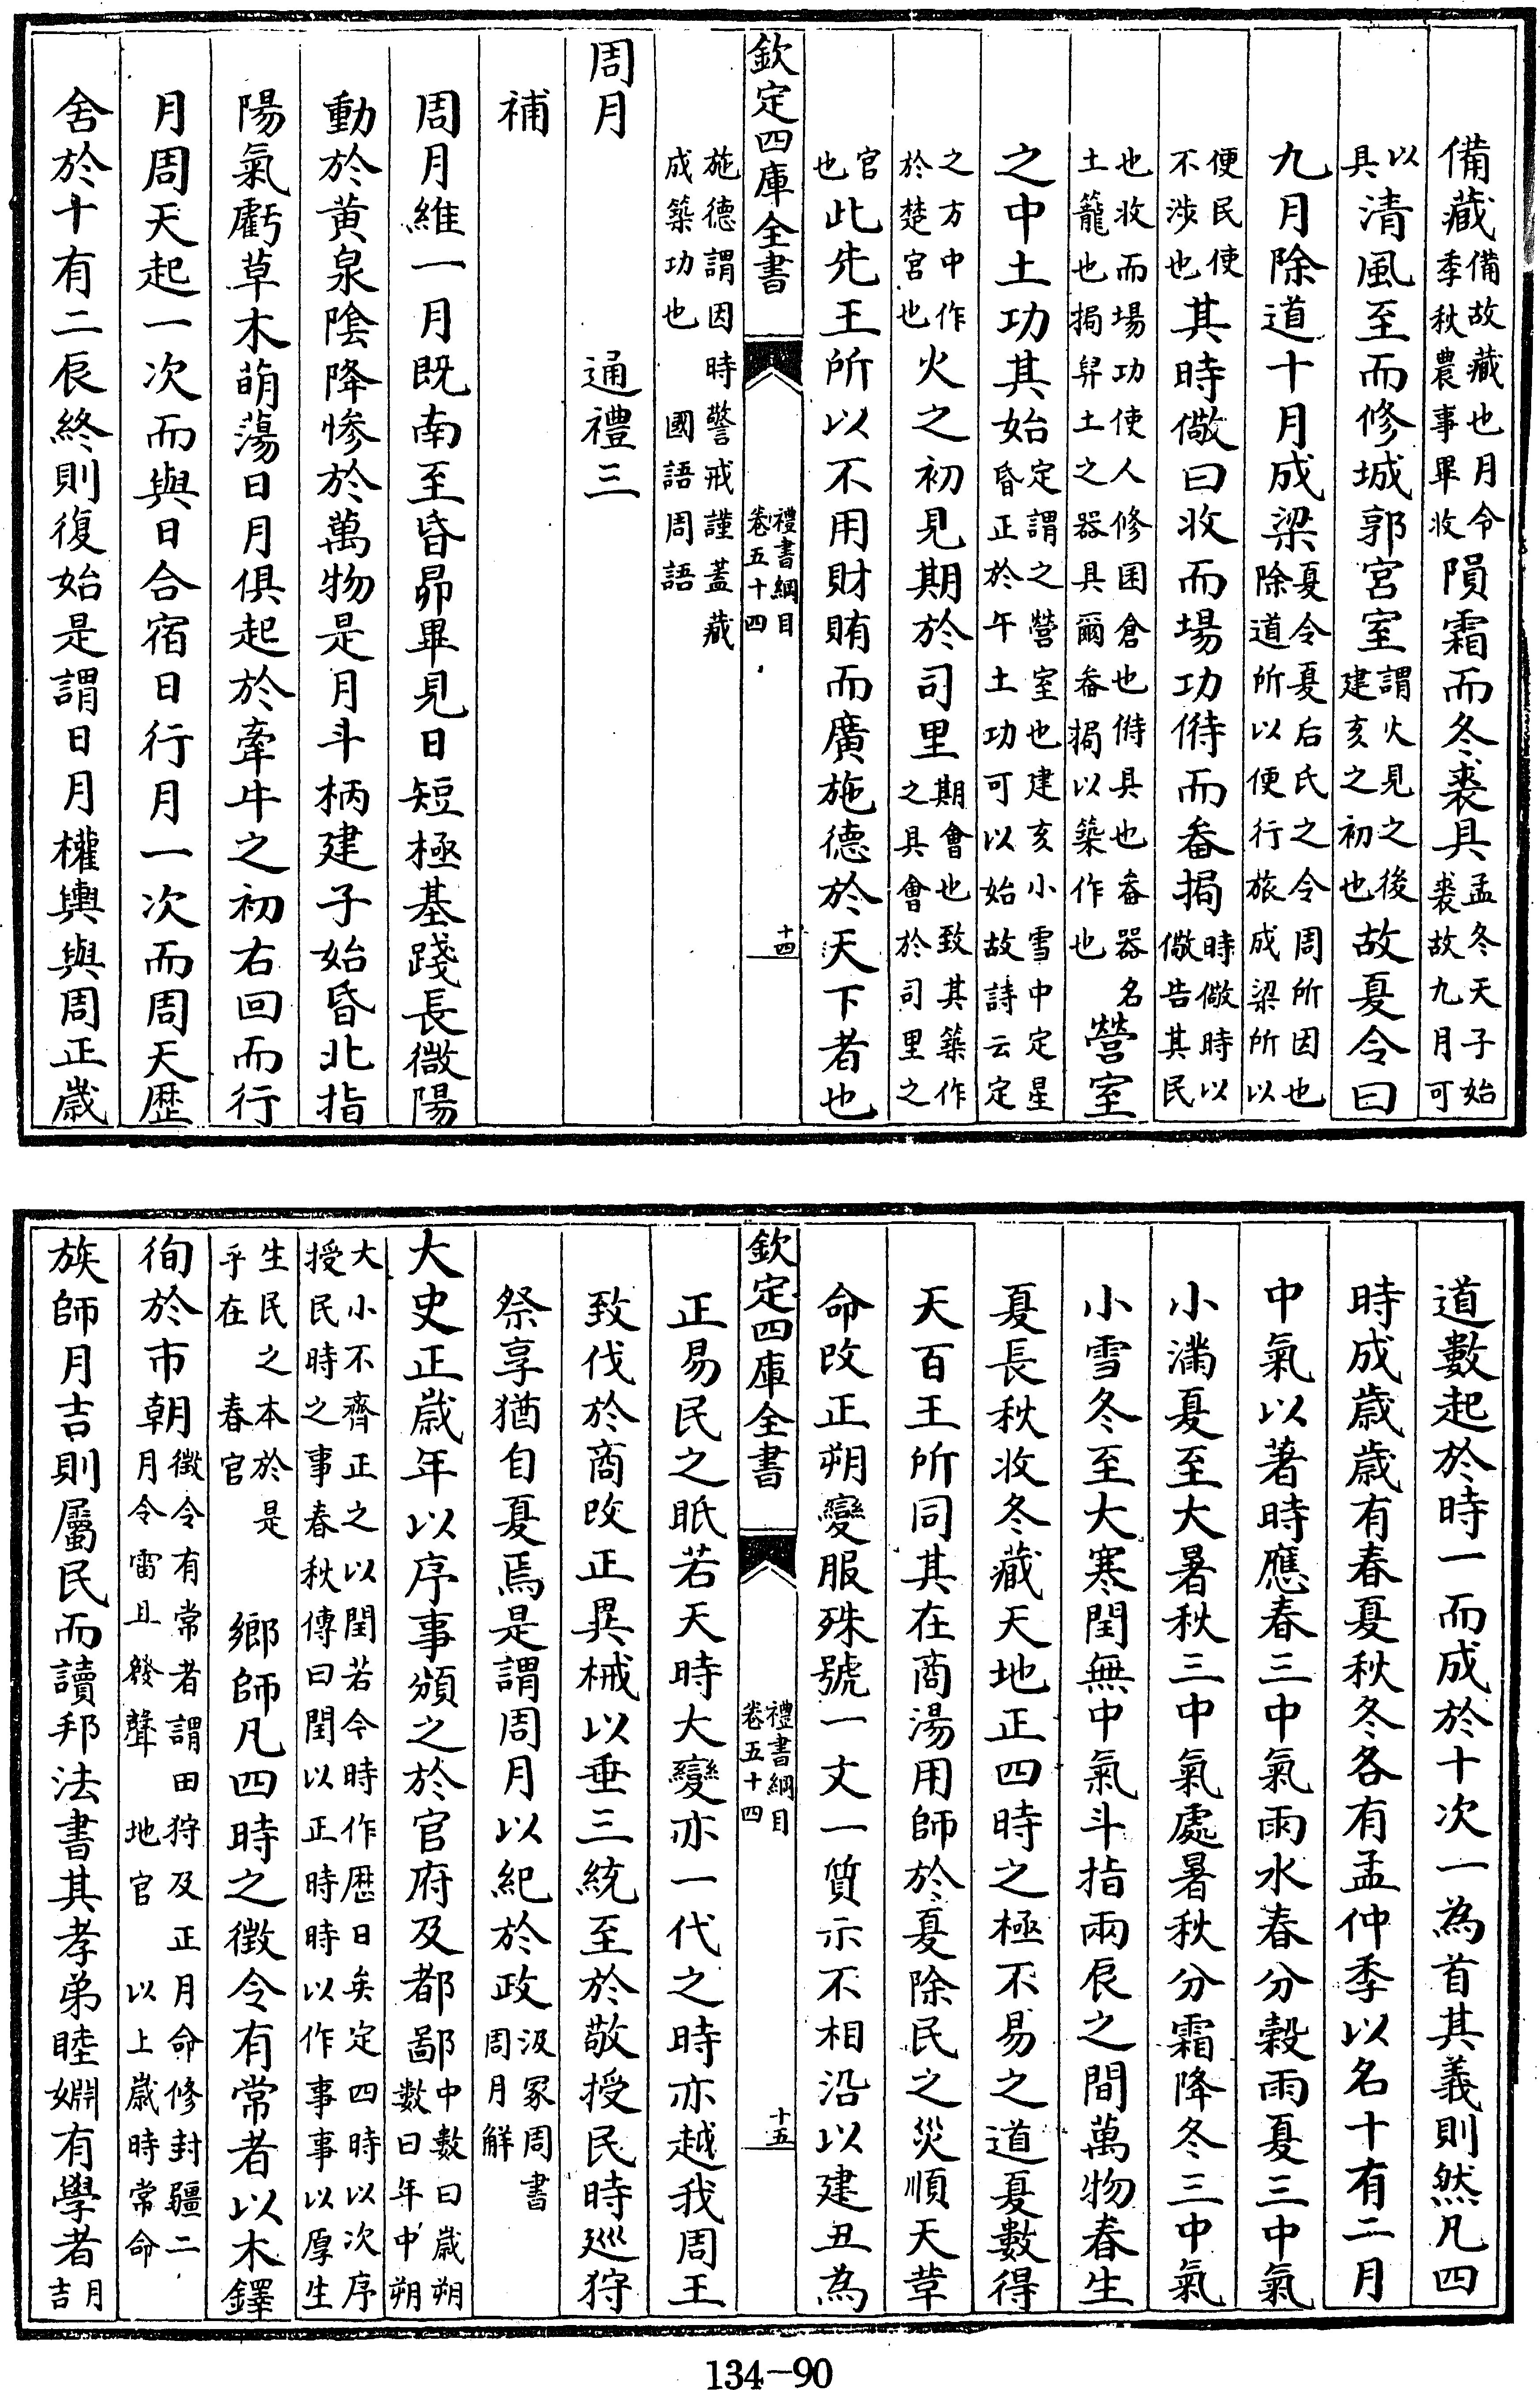 備藏備故藏也月令季秋農事畢收隕霜而冬裘具孟冬天子始裘故九月可
以具清風至而修城郭宮室謂火見之後建亥之初也故夏令曰
九月除道十月成梁夏令夏后氏之令周所因也除道所以便行旅成梁所以
便民使不涉也其時儆曰收而場功偫而畚挶時儆時以儆告其民
也收而場功使人修囷倉也偫具也畚器名土籠也挶舁土之器具爾畚挶以築作也營室
之中土功其始定謂之營室也建亥小雪中定星昏正於午土功可以始故詩云定
之方中作於楚宮也火之初見期於司里期會也致其築作之具會於司里之
官也此先王所以不用財賄而廣施德於天下者也
欽定四庫全書 禮書綱目卷五十四 十四
施德謂因時警戒謹蓋藏成築功也 國語周語
周月 通禮三
補
周月維一月既南至昏昴畢見日短極基踐長微陽
動於黃泉陰降慘於萬物是月斗柄建子始昏北指
陽氣虧草木萌蕩日月俱起於牽牛之初右回而行
月周天起一次而與日合宿日行月一次而周天歷
舍於十有二辰終則復始是謂日月權輿與周正歲
道數起於時一而成於十次一為首其義則然凡四
時成歲歲有春夏秋冬各有孟仲季以名十有二月
中氣以著時應春三中氣雨水春分穀雨夏三中氣
小滿夏至大暑秋三中氣處暑秋分霜降冬三中氣
小雪冬至大寒閏無中氣斗指兩辰之間萬物春生
夏長秋收冬藏天地正四時之極不易之道夏數得
天百王所同其在商湯用師於夏除民之災順天革
命改正朔變服殊號一文一質示不相沿以建丑為
欽定四庫全書 禮書綱目卷五十四 十五
正易民之眡若天時大變亦一代之時亦越我周王
致伐於商改正異械以垂三統至於敬授民時廵狩
祭享猶自夏焉是謂周月以紀於政汲冢周書周月解
大史正歲年以序事頒之於官府及都鄙中數曰歲朔數曰年中朔
大小不齊正之以閏若今時作歷日矣定四時以次序授民時之事春秋傳曰閏以正時時以作事事以厚生
生民之本於是乎在 春官 鄉師凡四時之徵令有常者以木鐸
徇於市朝徵令有常者謂田狩及正月命修封疆二月令雷且發聲 地官 以上歲時常命
族師月吉則屬民而讀邦法書其孝弟睦婣有學者月吉
134-90